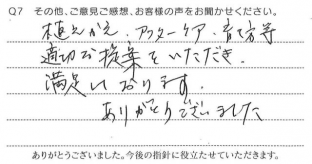 Q7 その他、ご意見ご感想、お客様の声をお聞かせください。
植えかえ、アフターケア、育て方等
適切な提案をいただき、
満足しております。
ありがとうございました
ありがとうございました。今後の指針に役立たせていただきます。